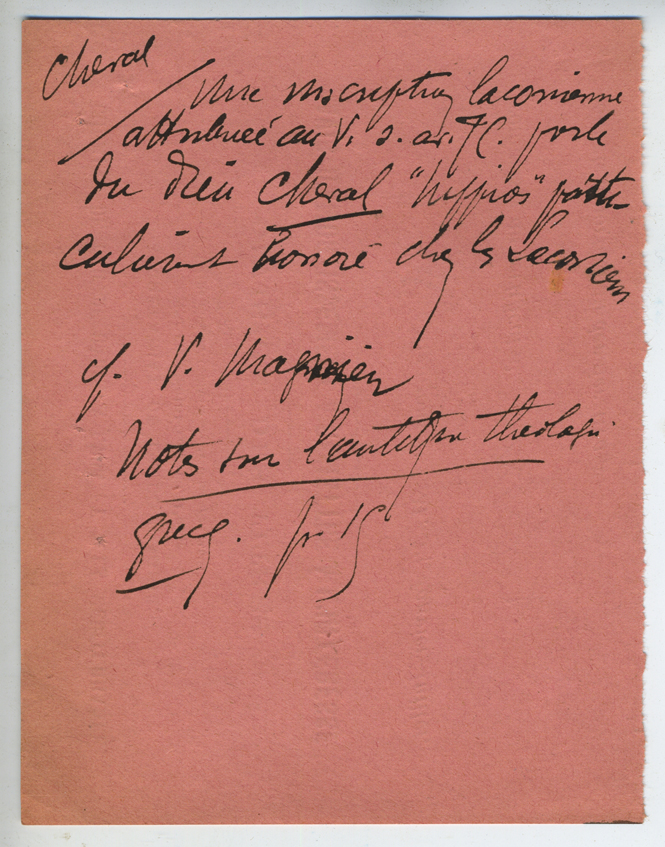 Cheval
Une inscription laconienne
attribuée au V. s. av. JC. parle
du Dieu Cheval "hippios" parti-
culièrement honoré chez les Laconiens
cf. V. Magnien
Notes sur l'antique théologie
grecq. p. 15